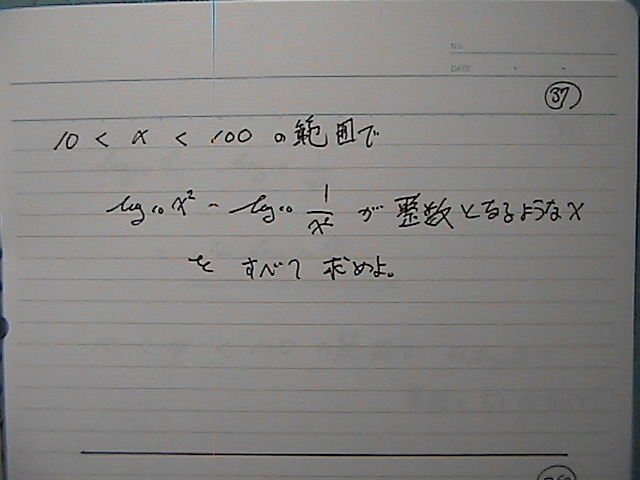 NO.
DATE
㊲
10 < x < 100 の範囲で
log₁₀ x² - log₁₀ 1/x² が 整数となるような x
を すべて 求めよ。